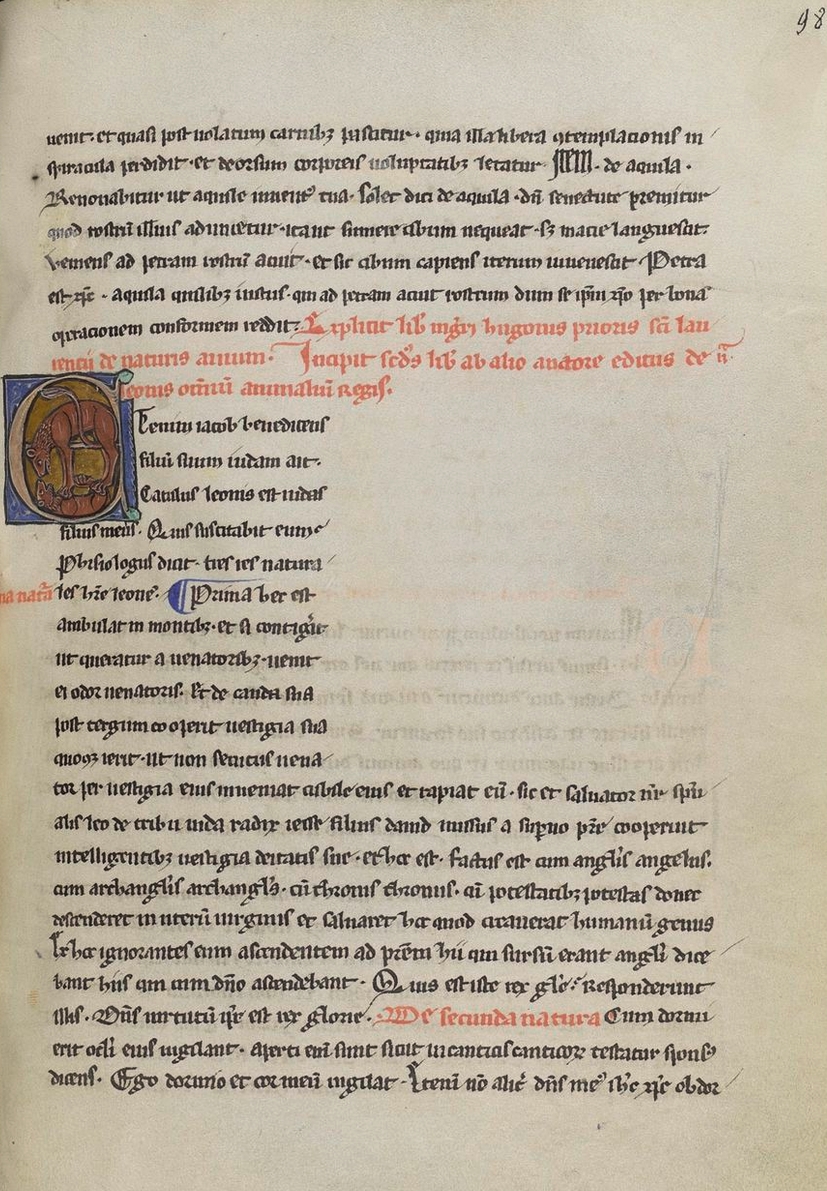 98
uenit. et quasi post uolatum carnibꝫ pascitur. quia illa libera ꝯtemplationis in
spiracula perdidit. et deorsum corporeis uoluptatibꝫ letatur. de aquila.
Renouabitur ut aquile iuuent᷒ tua. Solet dici de aquila. dū senectute premitur
quod rostrū illius aduncetur. ita ut sumere cibum nequeat. sꝫ macie languescit.
Veniens ad petram rostrū acuit. et sic cibum capiens iterum iuuenescit. Petra
est xp̄c. aquila quilibꝫ iustus. qui ad petram acuit rostrum dum se ip̄m xp̄o per bona
operationem conformem reddit. Explicit lib̄ mgr̄i hugonis prioris sc̄i lau
rentii de naturis auium. Incipit scd̄s lib̄ ab alio auctore editus de n̄
leonis om̄iū animaliū regis.
Etenim iacob benedicens
filiū suum iudam ait.
Catulus leonis est iudas
filius meus. Quis suscitabit eum
Phisiologus dicit. tres res natura
na natā les hr̄e leonē. Prima hec est
ambulat in montibꝫ. et si contig̾it
ut queratur a uenatoribꝫ. uenit
ei odor uenatoris. Et de cauda sua
post tergum cooperit uestigia sua
quoqꝫ ierit. Ut non secutus uena
tor per uestigia eius inueniat cubile eius et capiat eū. sic et saluator nr̄ sp̄ri
alis leo de tribu iuda radix iesse filius dauid missus a sup̄no pr̄e cooperuit
intelligentibꝫ uestigia deitatis sue. et hoc est. factus est cum angl̄is angelus.
cum archangl̄is archangl̄s. cū thronis thronus. cū potestatibꝫ potestas donec
descenderet in uterū uirginis et saluaret hoc quod errauerat humanū genus
Ex hoc ignorantes eum ascendentem ad pr̄em hii qui sursū erant angl̄i dice
bant hiis qui cum dn̄o ascendebant. Quis est iste rex gl̄e. Responderunt
illis. Dn̄s uirtutū ip̄e est rex glorie. De secunda natura Cum dormi
erit ocl̄i eius uigilant. aperti eni̅ sunt sicut in canticis canticoꝝ testatur spons᷒
dicens. Ego dormio et cor meū uigilat. Eteni̅ dn̄s me᷒ ih̄c xp̄c obdor